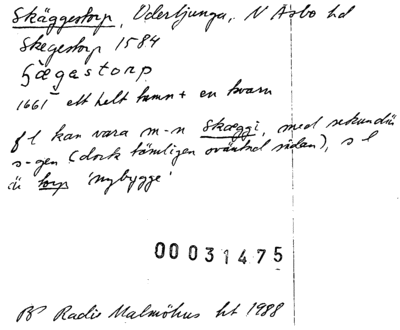 Skäggestorp, Oderljunga, N Åsbo hd
Skegestorp 1584
Sḡægastorp
1661 ett helt hemn + en kvarn
f l kan vara m-n Skæggi, med sekundär
s-gen (dock tämligen oväntad sådan), s l
är torp 'nybygge'
00031475
BP Radio Malmöhus ht 1988